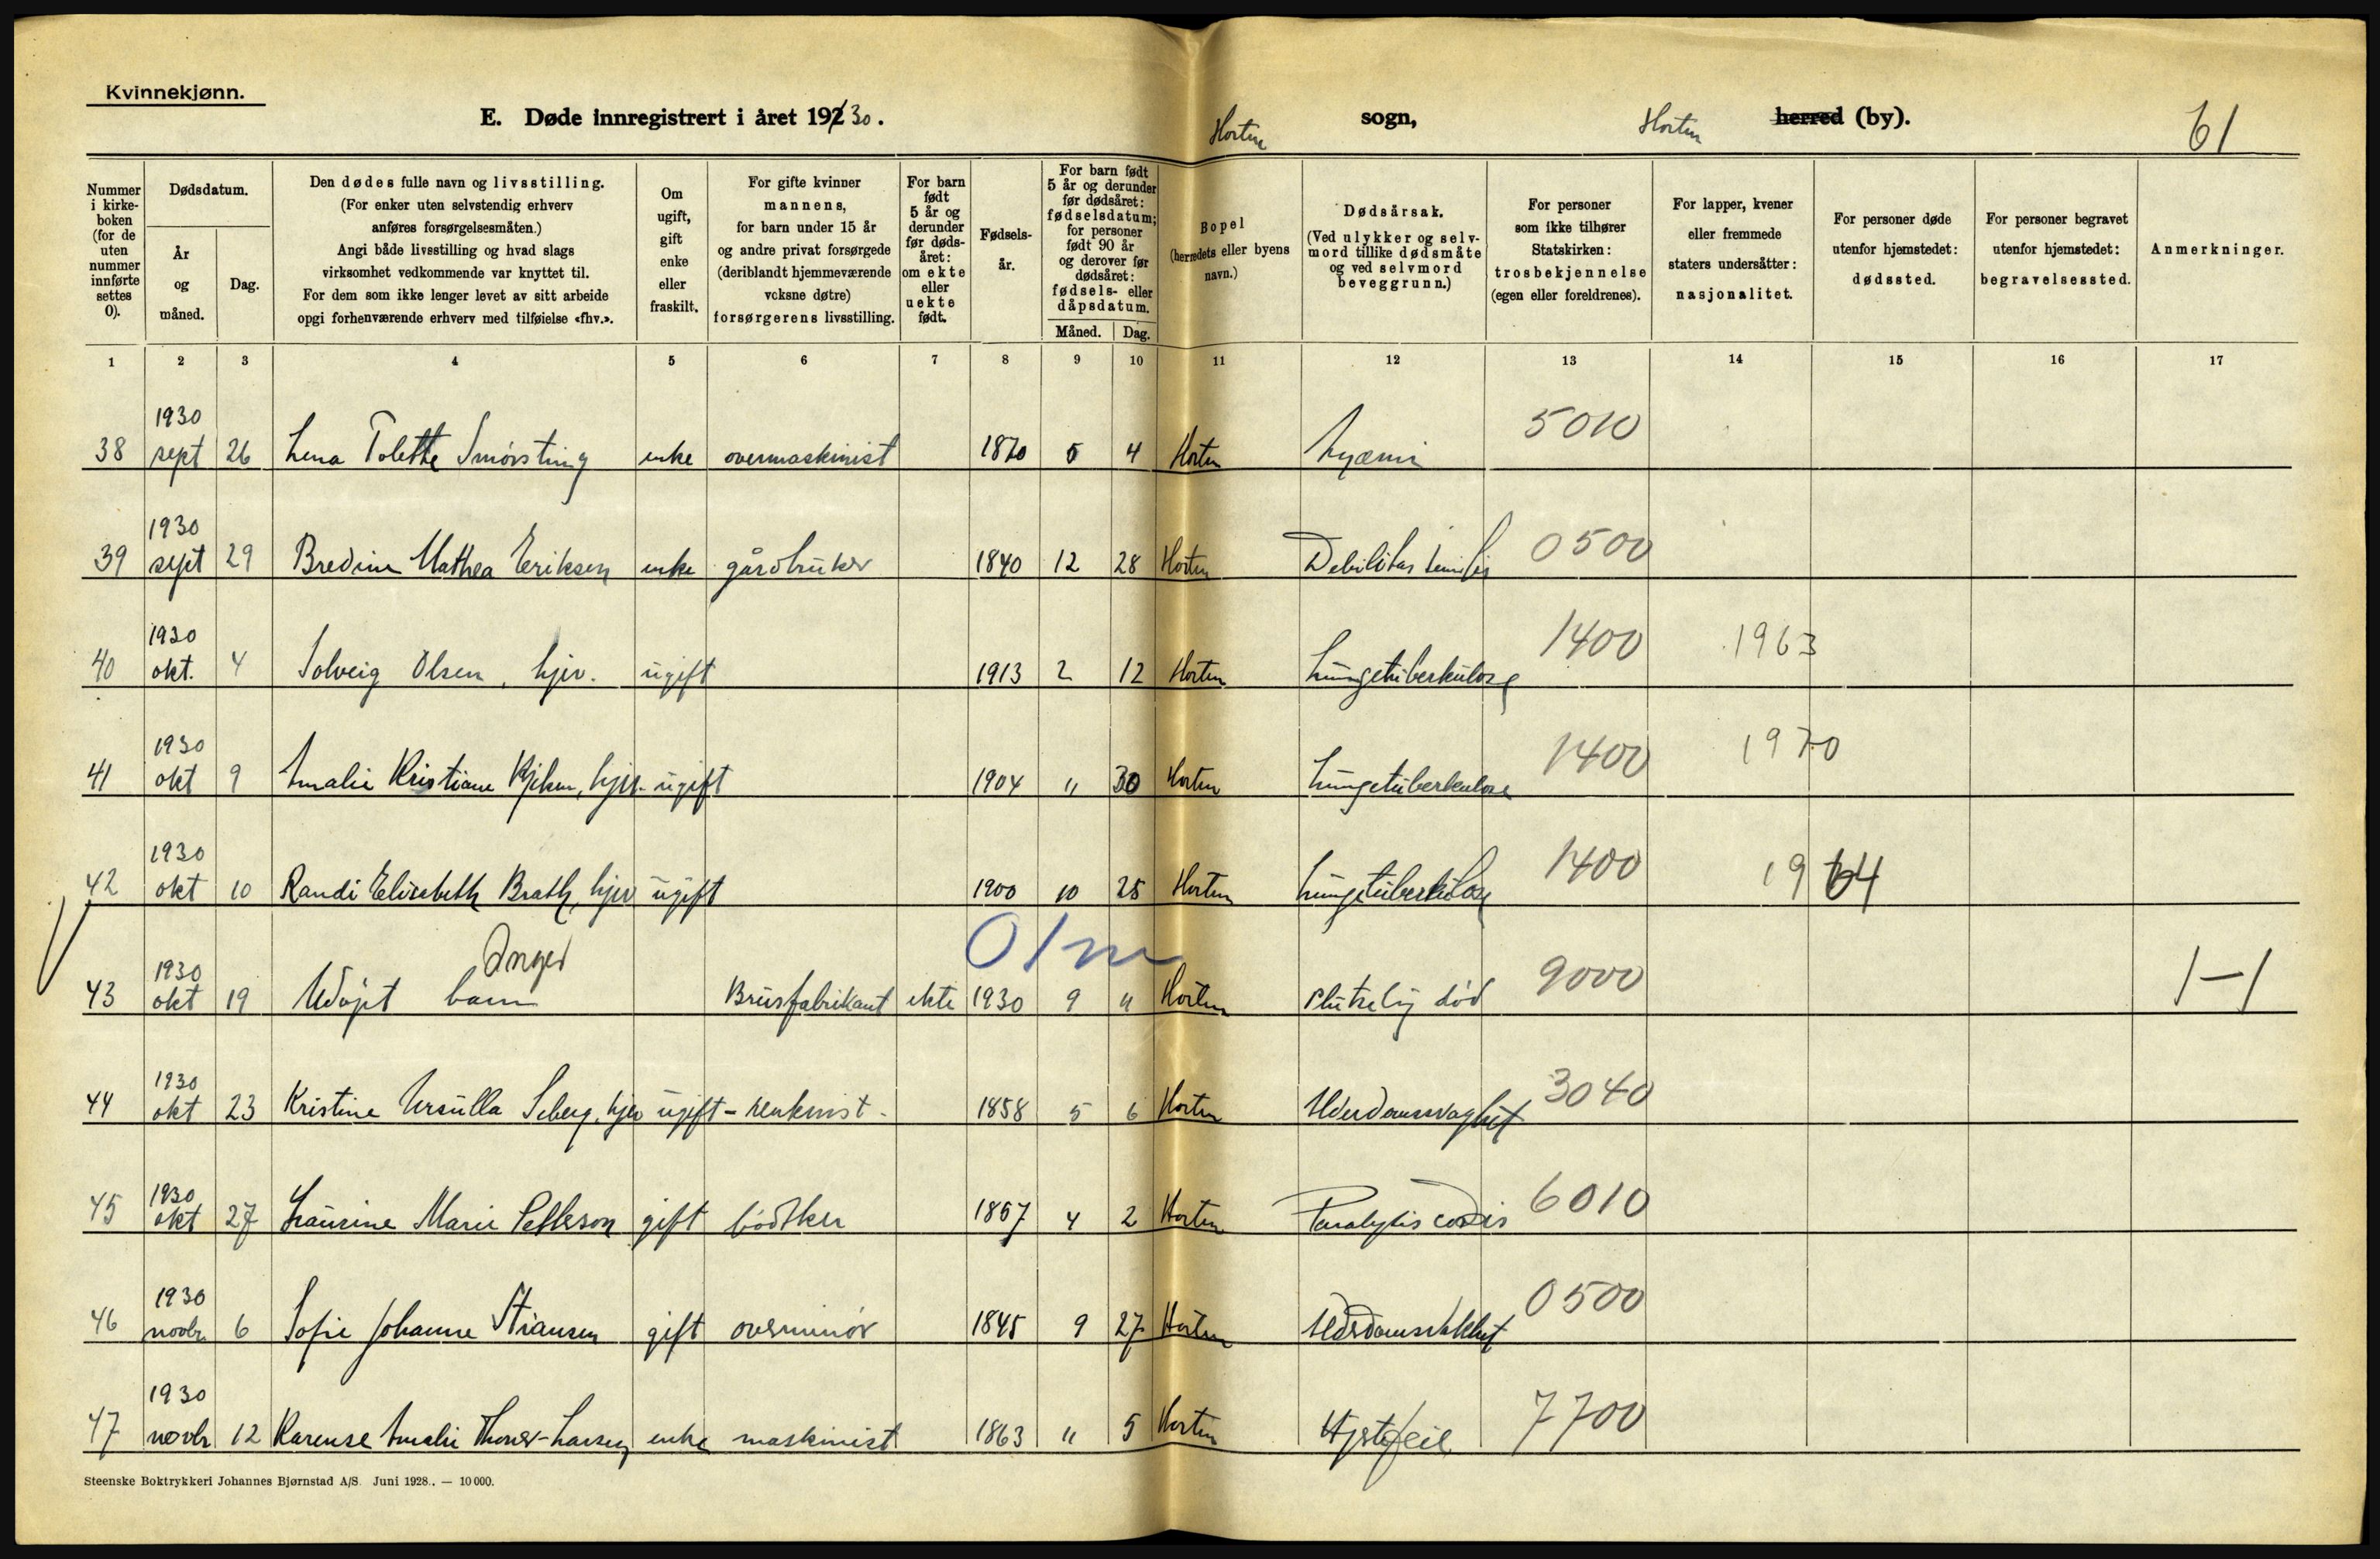 Kvinnekjønn.
E. Døde innregistrert i året 19230.
Horten sogn, Horten herred (by). 61
Nummer i kirke-boken (for de uten nummer innførte settes 0).
Dødsdatum.
År og måned.
Dag.
Den dødes fulle navn og livsstilling.
(For enker uten selvstendig erhverv
anføres forsørgelsesmåten.)
Angi både livsstilling og hvad slags
virksomhet vedkommende var knyttet til.
For dem som ikke lenger levet av sitt arbeide
opgi forhenværende erhverv med tilføielse «fhv.».
Om ugift, gift enke eller fraskilt.
For gifte kvinner
mannens,
for barn under 15 år
og andre privat forsørgede
(deriblandt hjemmeværende
voksne døtre)
forsørgerens livsstilling.
For barn født 5 år og derunder før døds-året: om ekte eller uekte født.
Fødsels-år.
For barn født
5 år og derunder
før dødsåret:
fødselsdatum;
for personer
født 90 år
og derover før
dødsåret:
fødsels- eller
dåpsdatum.
Måned. Dag.
Bopel
(herredets eller byens
navn.)
Dødsårsak.
(Ved ulykker og selv-
mord tillike dødsmåte
og ved selvmord
beveggrunn.)
For personer
som ikke tilhører
Statskirken:
trosbekjennelse
(egen eller foreldrenes).
For lapper, kvener
eller fremmede
staters undersåtter:
nasjonalitet.
For personer døde
utenfor hjemstedet:
dødssted.
For personer begravet
utenfor hjemstedet:
begravelsessted.
Anmerkninger.
1 2 3 4 5 6 7 8 9 10 11 12 13 14 15 16 17
1930
38 sept 26 Lena Tolette Smørsting enke overmaskinist 1870 5 4 Horten 5010
1930
39 sept 29 Bredine Mathea Eriksen enke gårdbruker 1840 12 28 Horten Debilitas senilis 0500
1930
40 okt. 4 Solveig Olsen, hjv. ugift 1913 2 12 Horten Lungetuberkulose 1400 1963
1930
41 okt 9 Amalie Kristiane hjv. ugift 1904 11 30 Horten Lungetuberkulose 1400 1970
1930
42 okt 10 Randi Elisebeth Brath, hjv ugift 1900 10 25 Horten Lungetuberkulose 1400 1964
Inger 01m
1930
43 okt 19 Udøpt barn Brusfabrikant ekte 1930 9 11 Horten Plutselig død 9000 1-1
1930
44 okt 23 Kristine Ursulla Seberg, hjv ugift - 1858 5 6 Horten Alderdomssvaghet 3040
1930
45 okt 27 Laurine Marie Petterson gift bødtker 1867 4 2 Horten Paralysis cordis 6010
1930
46 novbr 6 Sofie Johanne Stiansen gift overminør 1845 9 27 Horten Alderdomssvakhet 0500
1930
47 novbr 12 Karense Amalie Thoner-Larsen enke maskinist 1863 11 5 Horten Hjertefeil 7700
Steenske Boktrykkeri Johannes Bjørnstad A/S. Juni 1928. — 10 000.